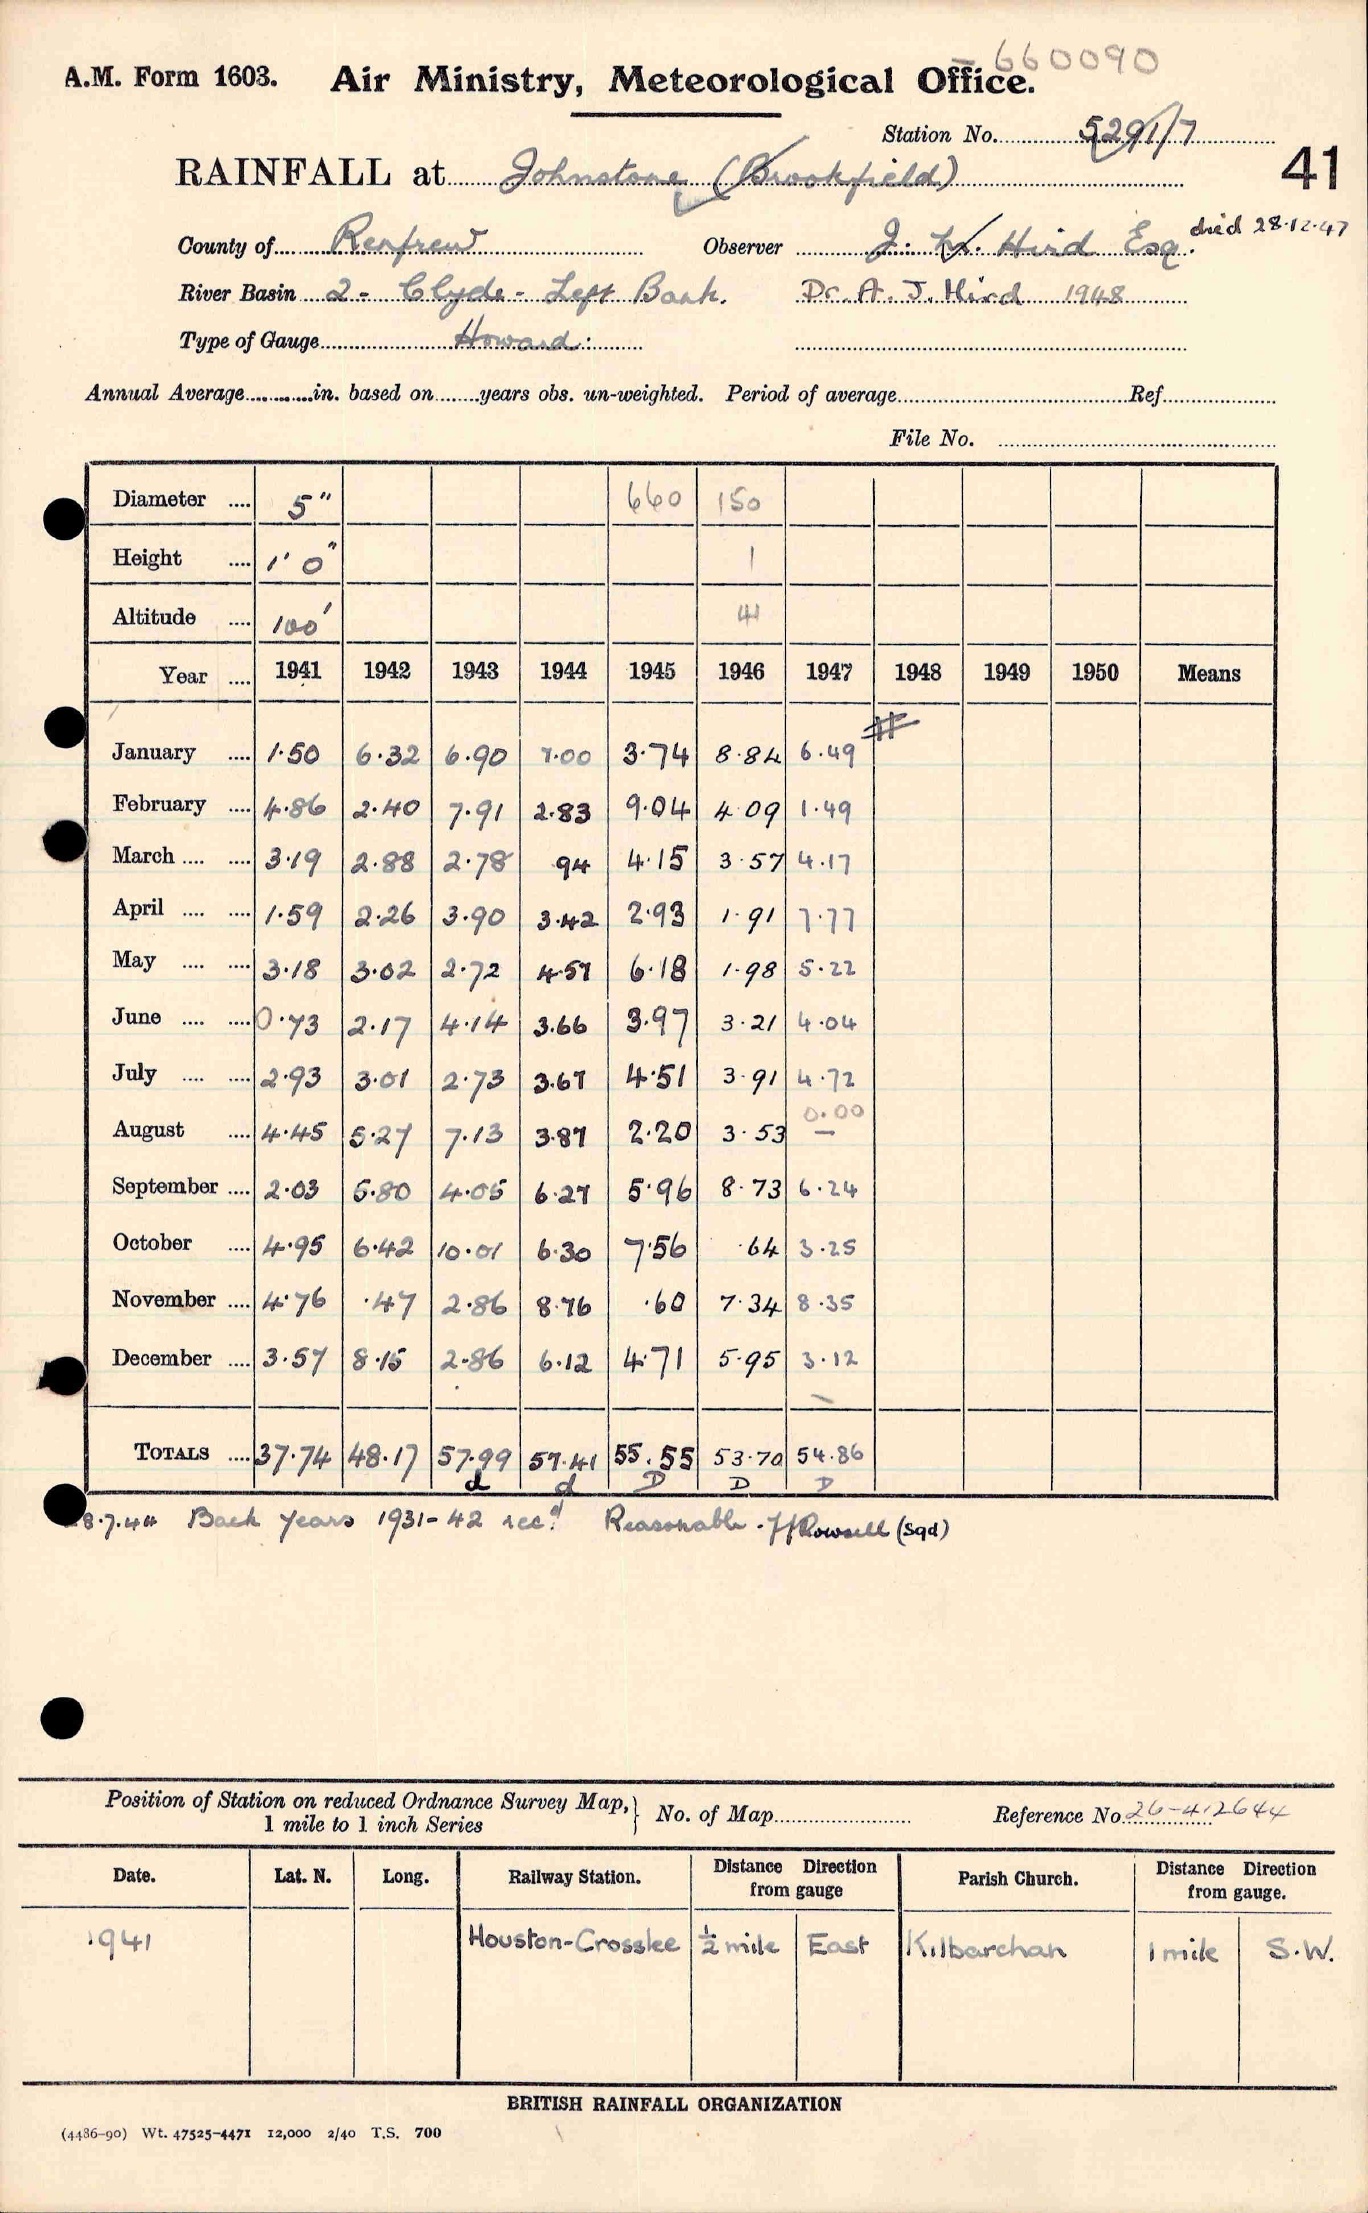 660090
A.M. Form 1603. Air Ministry, Meteorological Office.
Station No. 5291/7
41
RAINFALL at Johnstone (Brookfield)
County of Renfrew Observer J. W. Hird Esq. died 28.12.47
River Basin 2 - Clyde - Left Bank. Dr. A. J. Hird 1948
Type of Gauge Howard:
Annual Average in. based on years obs. un-weighted. Period of average Ref
File No.
Diameter 5" 660 150
Height 1' 0" 1
Altitude 100' 41
Year 1941 1942 1943 1944 1945 1946 1947 1948 1949 1950 Means
January 1.50 6.32 6.90 7.00 3.74 8.84 6.49
February 4.86 2.40 7.91 2.83 9.04 4.09 1.49
March 3.19 2.88 2.78 94 4.15 3.57 4.17
April 1.59 2.26 3.90 3.42 2.93 1.91 7.77
May 3.18 3.02 2.72 4.57 6.18 1.98 5.22
June 0.73 2.17 4.14 3.66 3.97 3.21 4.04
July 2.93 3.01 2.73 3.67 4.51 3.91 4.72
0.00
August 4.45 5.27 7.13 3.87 2.20 3.53 —
September 2.03 5.80 4.05 6.27 5.96 8.73 6.24
October 4.95 6.42 10.01 6.30 7.56 .64 3.25
November 4.76 .47 2.86 8.76 .60 7.34 8.35
December 3.57 8.15 2.86 6.12 4.71 5.95 3.12
TOTALS 37.74 48.17 57.99 57.41 55.55 53.70 54.86
d d D D D
8.7.44 Back years 1931-42 rec.d Reasonable. Rowsell (Sqd)
Position of Station on reduced Ordnance Survey Map, 1 mile to 1 inch Series } No. of Map Reference No. 26-412644
Date. Lat. N. Long. Railway Station. Distance Direction from gauge Parish Church. Distance Direction from gauge.
1941 Houston-Crosslee ½ mile East Kilbarchan 1 mile S.W.
BRITISH RAINFALL ORGANIZATION
(4486-90) Wt. 47525-4471 12,000 2/40 T.S. 700